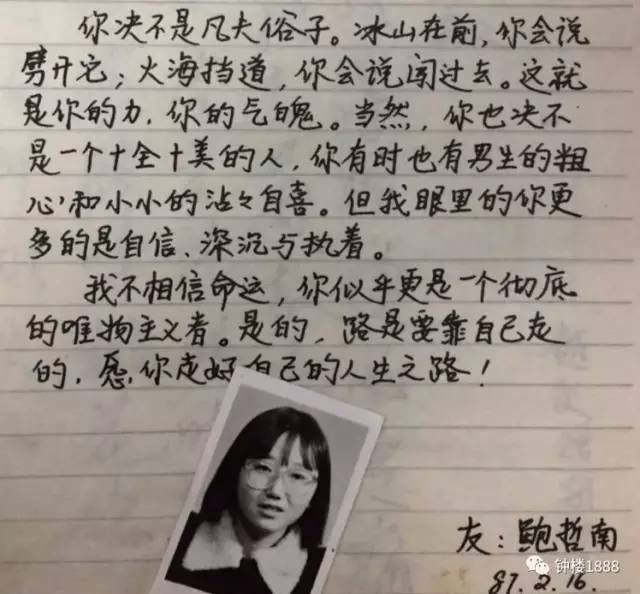 你决不是凡夫俗子。冰山在前，你会说
劈开它；火海挡道，你会说闯过去。这就
是你的力，你的气魄。当然，你也决不
是一个十全十美的人，你有时也有男生的粗
心和小小的沾々自喜。但我眼里的你更
多的是自信、深沉与执着。
我不相信命运，你似乎更是一个彻底
的唯物主义者。是的，路是要靠自己走
的，愿你走好自己的人生之路！
友：鲍哲南
钟楼1888
87.2.16.